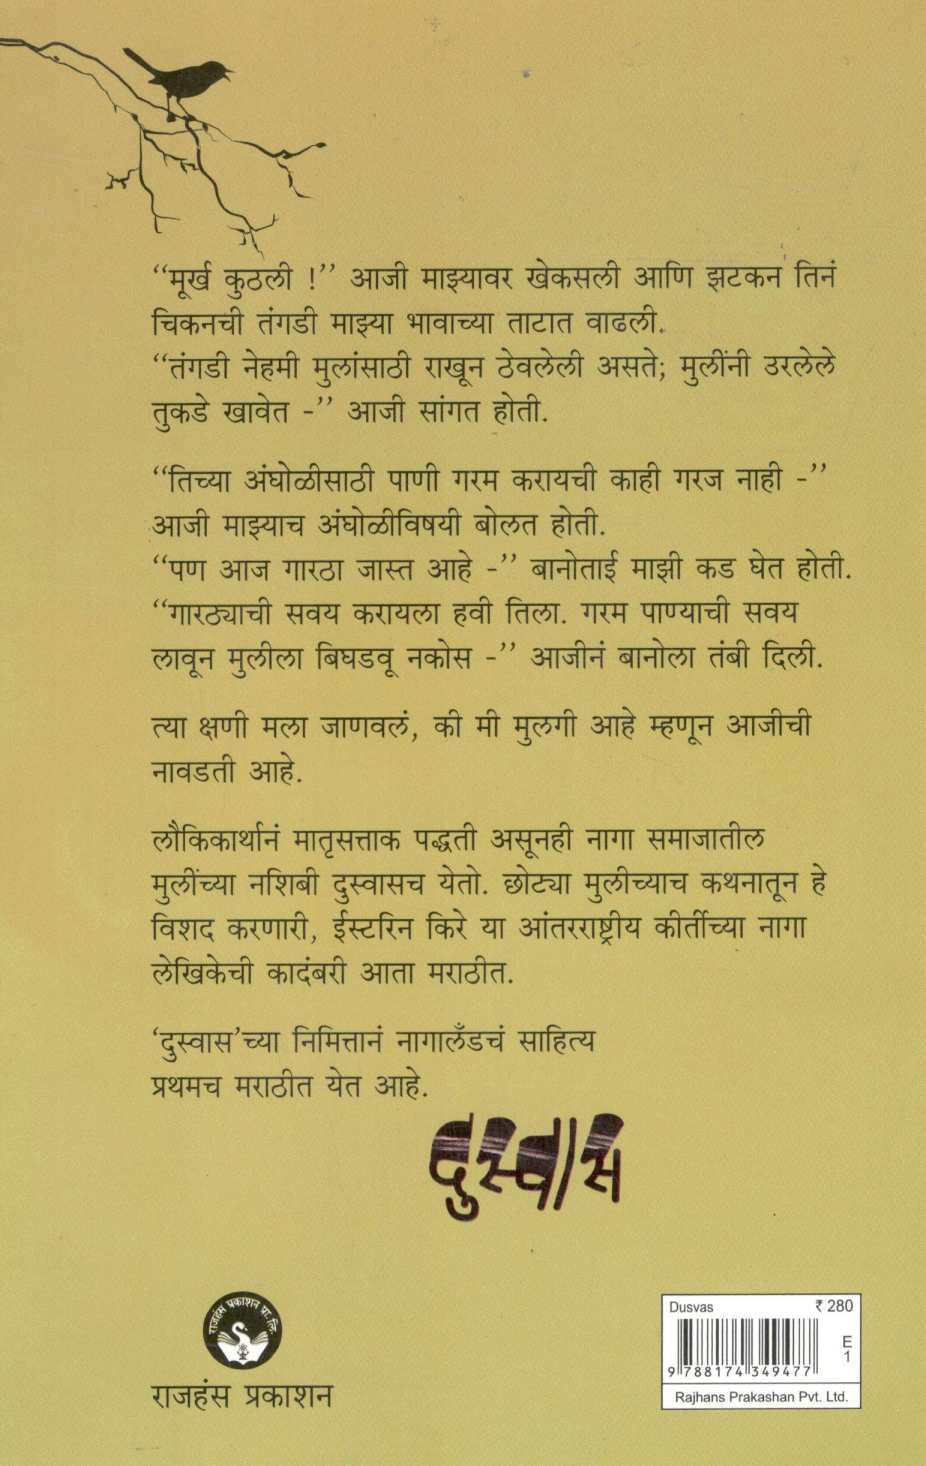 “मूर्ख कुठली !” आजी माझ्यावर खेकसली आणि झटकन तिनं
चिकनची तंगडी माझ्या भावाच्या ताटात वाढली.
“तंगडी नेहमी मुलांसाठी राखून ठेवलेली असते; मुलींनी उरलेले
तुकडे खावेत -” आजी सांगत होती.
“तिच्या अंघोळीसाठी पाणी गरम करायची काही गरज नाही -”
आजी माझ्याच अंघोळीविषयी बोलत होती.
“पण आज गारठा जास्त आहे -” बानोताई माझी कड घेत होती.
“गारठ्याची सवय करायला हवी तिला. गरम पाण्याची सवय
लावून मुलीला बिघडवू नकोस -” आजीनं बानोला तंबी दिली.
त्या क्षणी मला जाणवलं, की मी मुलगी आहे म्हणून आजीची
नावडती आहे.
लौकिकार्थानं मातृसत्ताक पद्धती असूनही नागा समाजातील
मुलींच्या नशिबी दुस्वासच येतो. छोट्या मुलीच्याच कथनातून हे
विशद करणारी, ईस्टरिन किरे या आंतरराष्ट्रीय कीर्तीच्या नागा
लेखिकेची कादंबरी आता मराठीत.
‘दुस्वास’च्या निमित्तानं नागालँडचं साहित्य
प्रथमच मराठीत येत आहे.
दुस्वास
राजहंस प्रकाशन प्रा. लि.
राजहंस प्रकाशन
Dusvas ₹ 280
E
1
9 788174 349477
Rajhans Prakashan Pvt. Ltd.